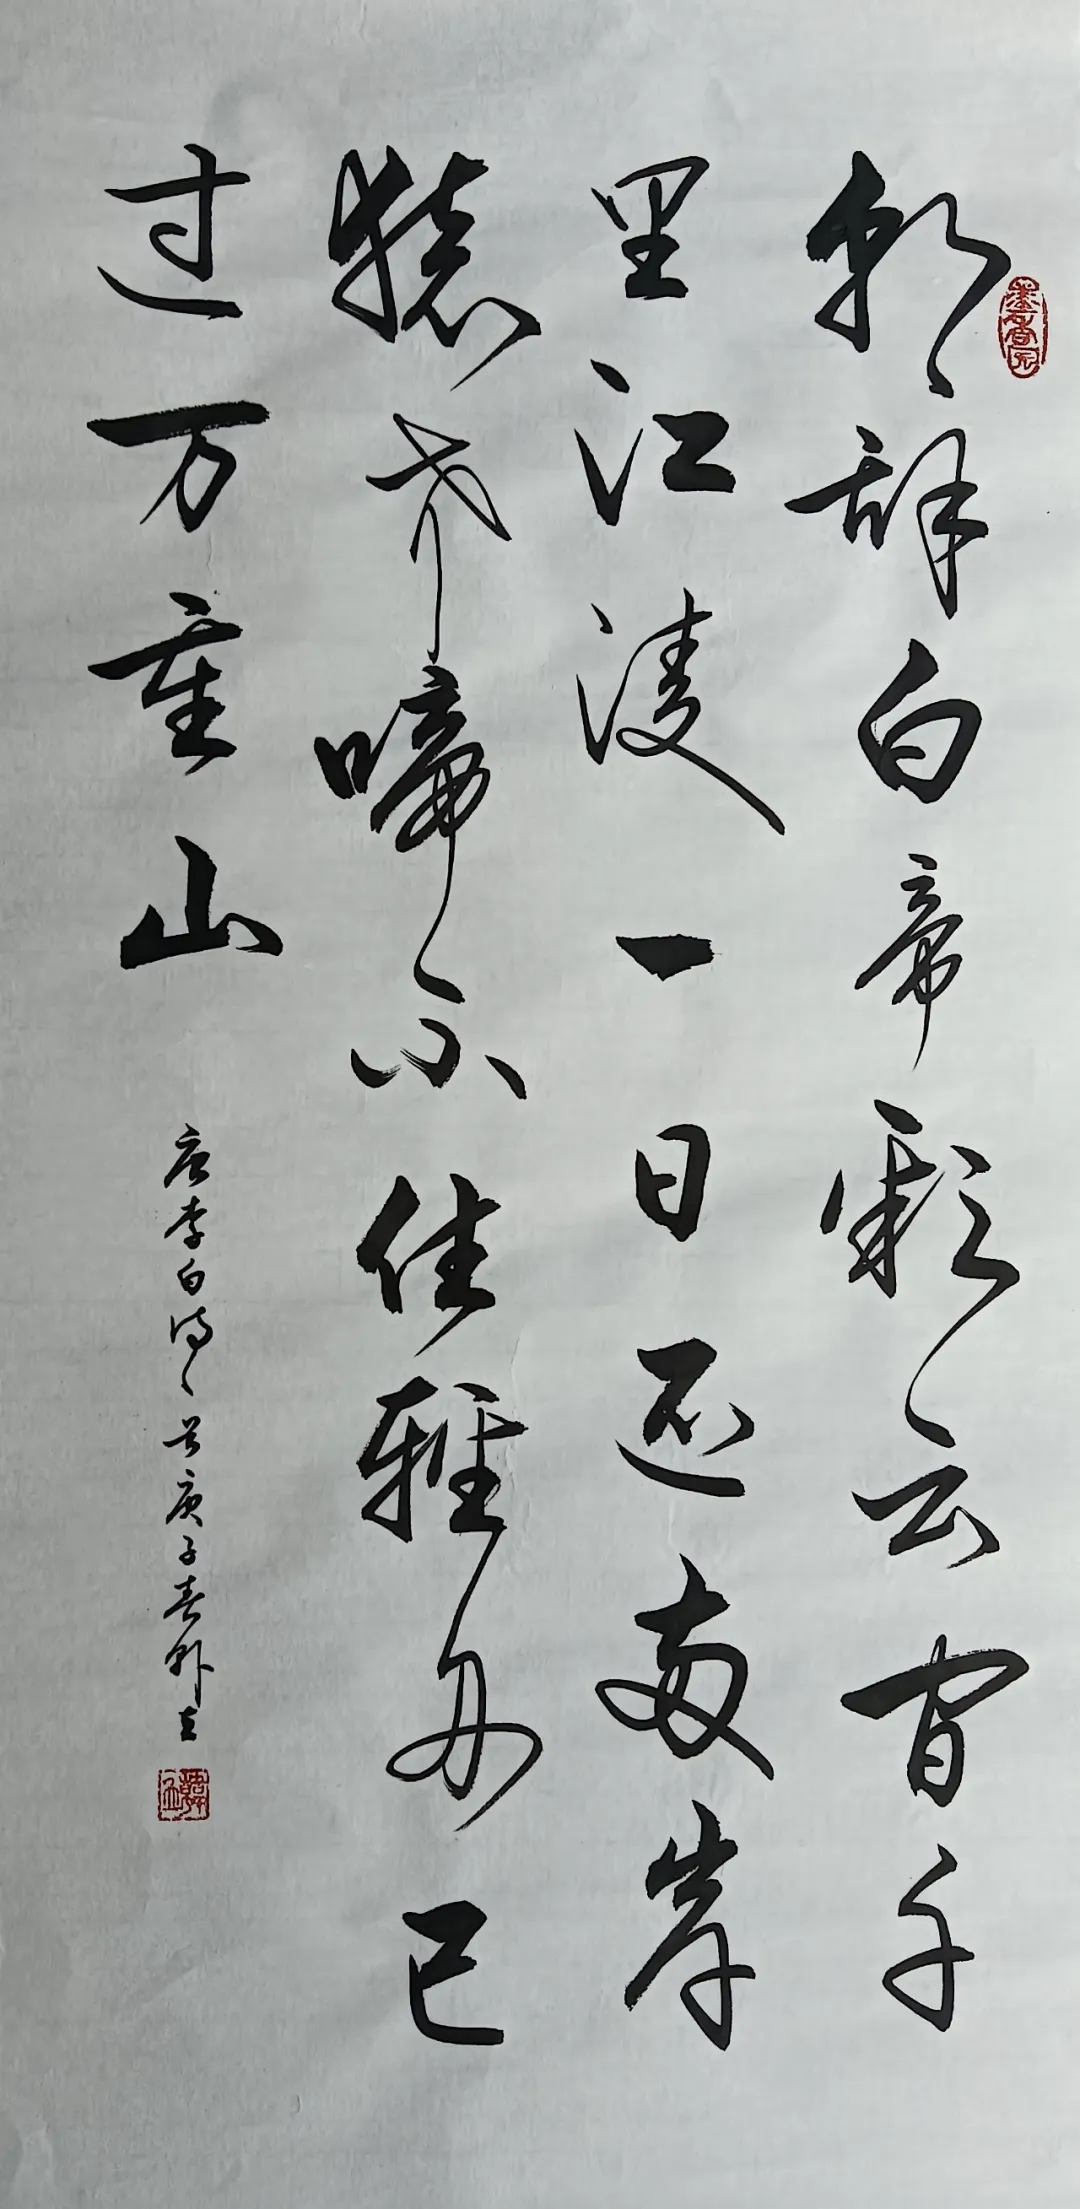 朝辞白帝彩云间千
里江陵一日还两岸
猿声啼不住轻舟已
过万重山
唐李白诗一首庚子春
墨香阁